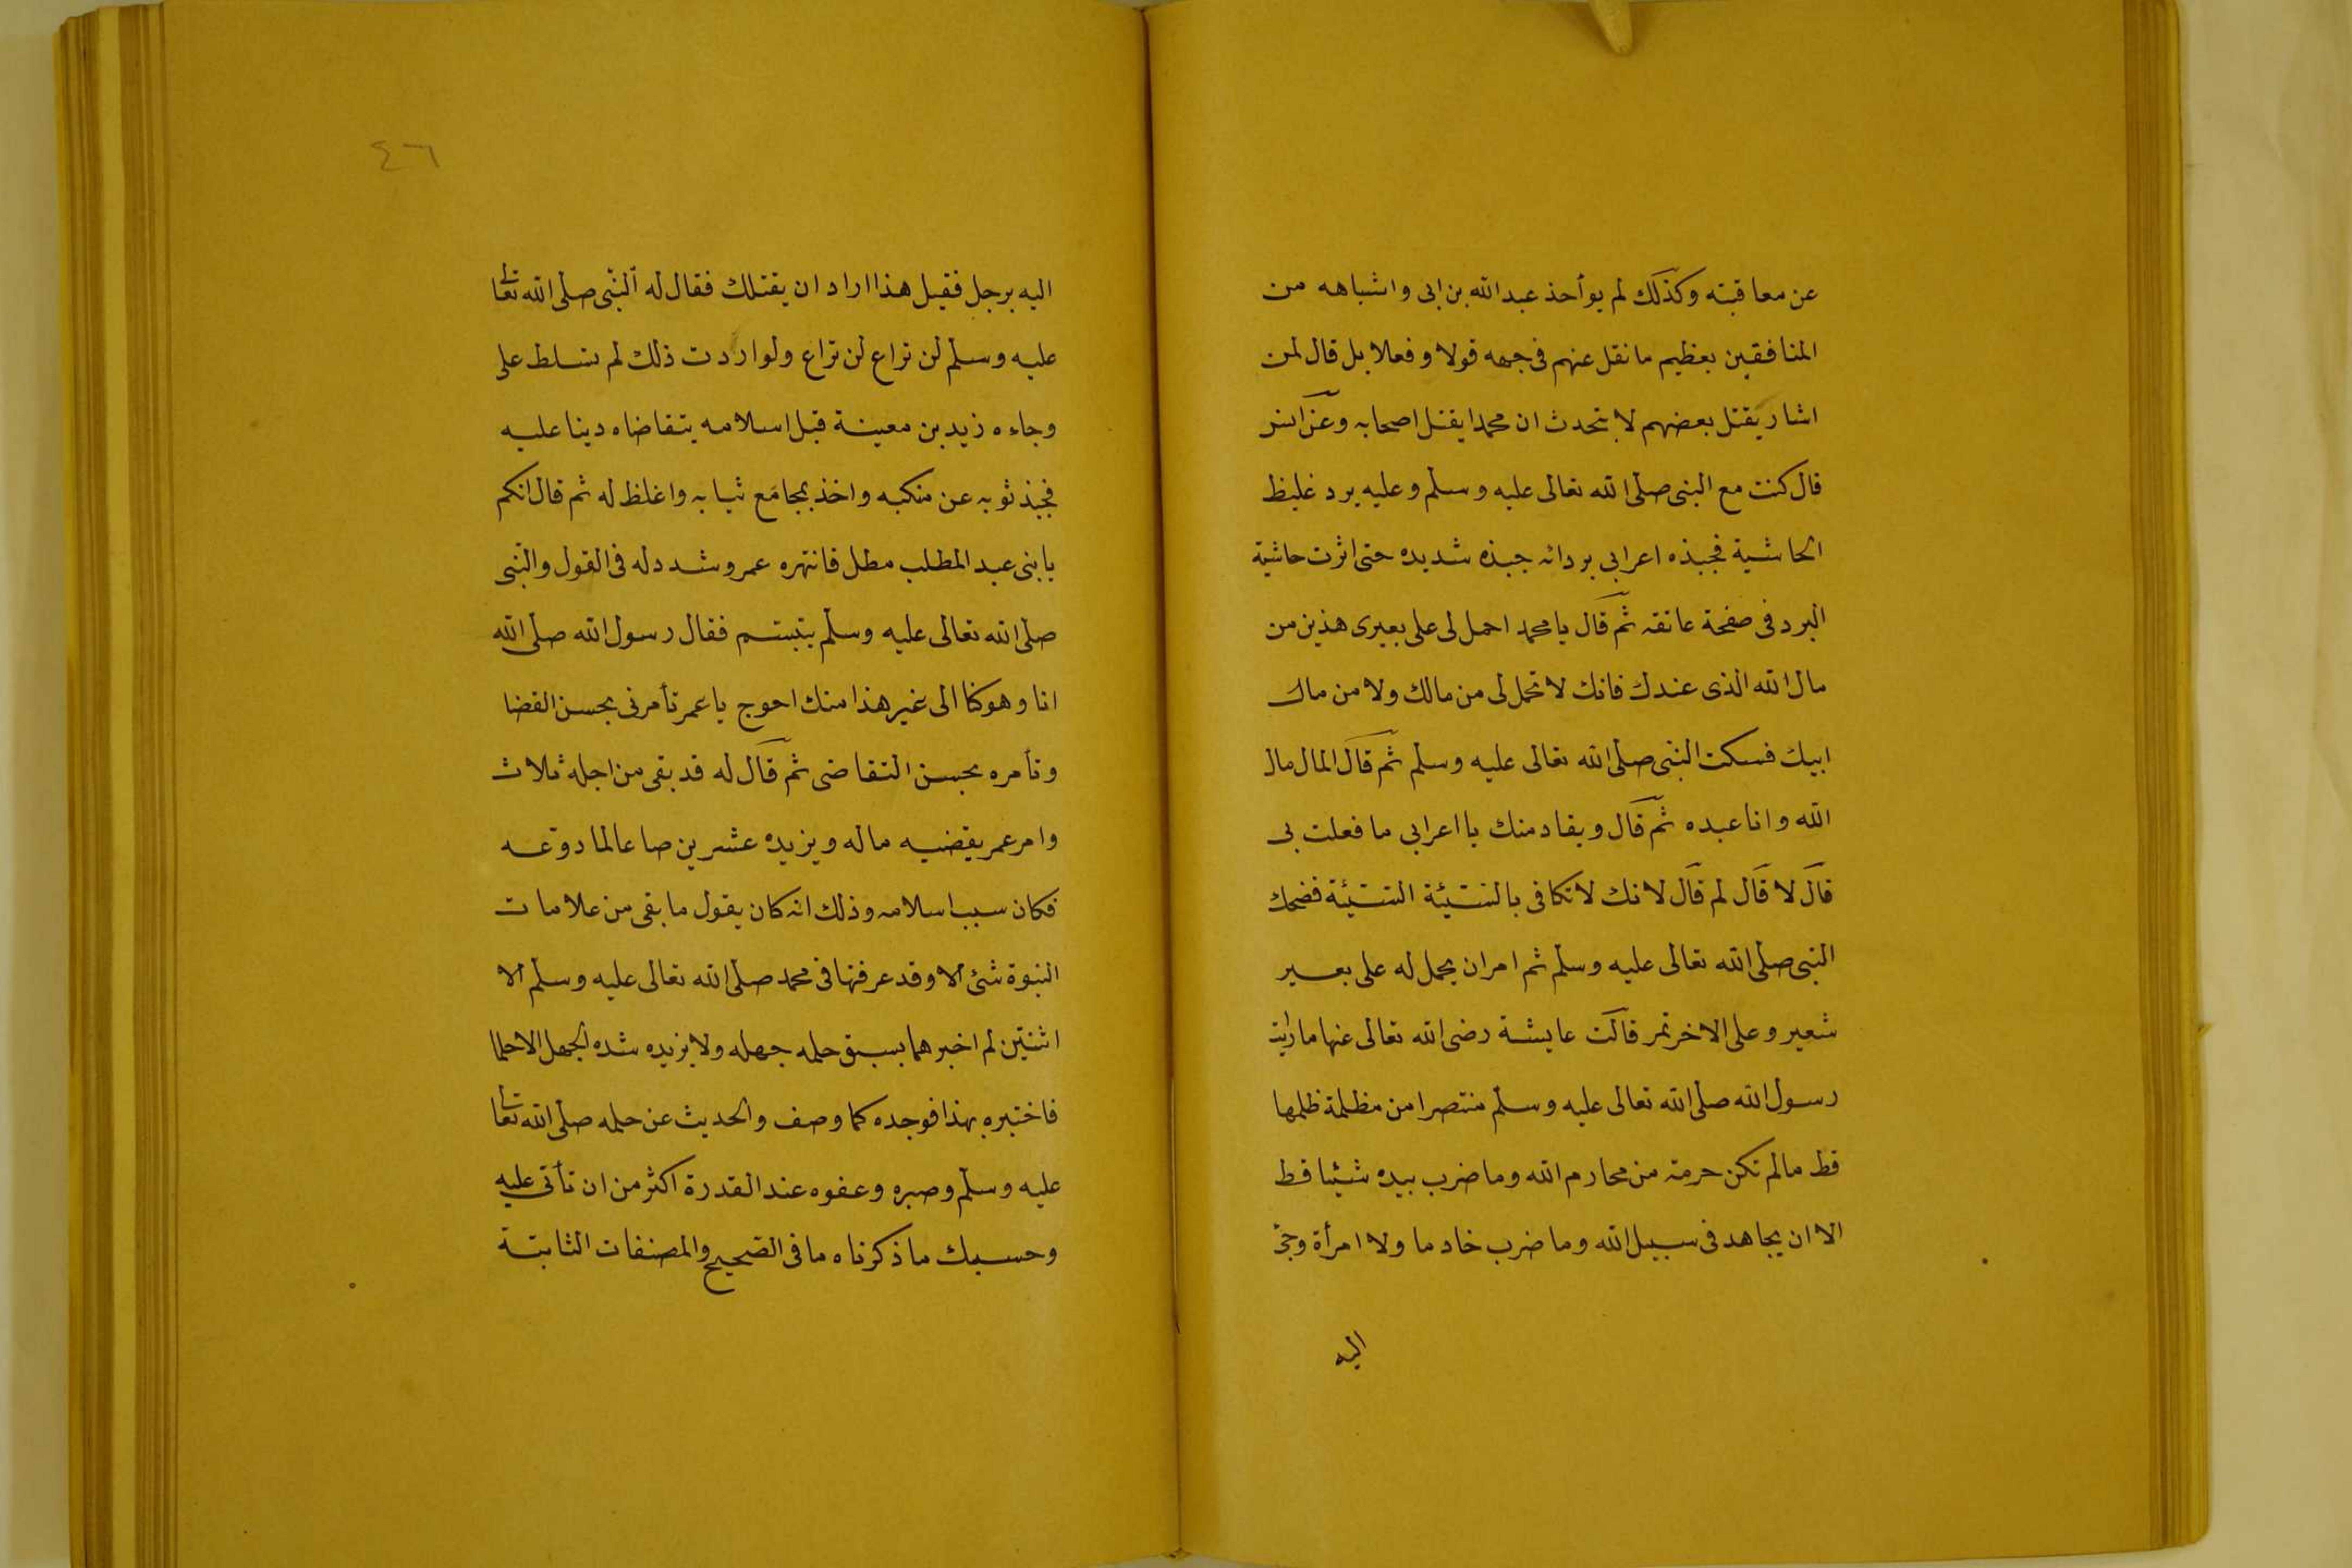 عن معاقبته وكذلك لم يوأحذ عبد الله بن ابى واشباهه من
المنافقين بعظيم ما نقل عنهم فى جهه قولا وفعلا بل قال لمن
اشار بقتل بعضهم لا يتحدث ان محمدا يقتل اصحابه وعن انس
قال كنت مع النبى صلى الله تعالى عليه وسلم وعليه برد غليظ
الحاشية فجبذه اعرابى بردائه جبذه شديده حتى اثرت حاشية
البرد فى صفحة عاتقه ثم قال يا محمد احمل لى على بعيرى هذين من
مال الله الذى عندك فانك لا تحمل لى من مالك ولا من مال
ابيك فسكت النبى صلى الله تعالى عليه وسلم ثم قال المال مال
الله وانا عبده ثم قال ويقاد منك يا اعرابى ما فعلت بى
قال لا قال لم قال لانك لا تكافى بالسيئة السيئة فضحك
النبى صلى الله تعالى عليه وسلم ثم امر ان يحمل له على بعير
شعير وعلى الاخر تمر قالت عايشة رضى الله تعالى عنها ما رايت
رسول الله صلى الله تعالى عليه وسلم منتصرا من مظلمة ظلمها
قط ما لم تكن حرمة من محارم الله وما ضرب بيده شيئا قط
الا ان يجاهد فى سبيل الله وما ضرب خادما ولا امرأة وجئ
اليه
٤٦
اليه برجل فقيل هذا اراد ان يقتلك فقال له النبى صلى الله تعا
عليه وسلم لن تراع لن تراع ولو اردت ذلك لم تسلط على
وجاءه زيد بن معينة قبل اسلامه يتقاضاه دينا عليه
فجبذ ثوبه عن منكبه واخذ بمجامع ثيابه واغلظ له ثم قال انكم
يا بنى عبد المطلب مطل فانتهره عمر وشدد له فى القول والنبى
صلى الله تعالى عليه وسلم يتبسم فقال رسول الله صلى الله
انا وهو كنا الى غير هذا منك احوج يا عمر تأمرنى بحسن القضا
وتأمره بحسن التقاضى ثم قال له قد بقى من اجله ثلاث
وامر عمر يقضيه ماله ويزيده عشرين صاعا لما روعه
فكان سبب اسلامه وذلك انه كان يقول ما بقى من علامات
النبوة شئ الا وقد عرفتها فى محمد صلى الله تعالى عليه وسلم الا
اثنتين لم اخبرهما يسبق حلمه جهله ولا يزيده شده الجهل الا حلما
فاختبره بهذا فوجده كما وصف والحديث عن حلمه صلى الله تعا
عليه وسلم وصبره وعفوه عند القدرة اكثر من ان تأتى عليه
وحسبك ما ذكرناه ما فى الصحيح والمصنفات الثابتة